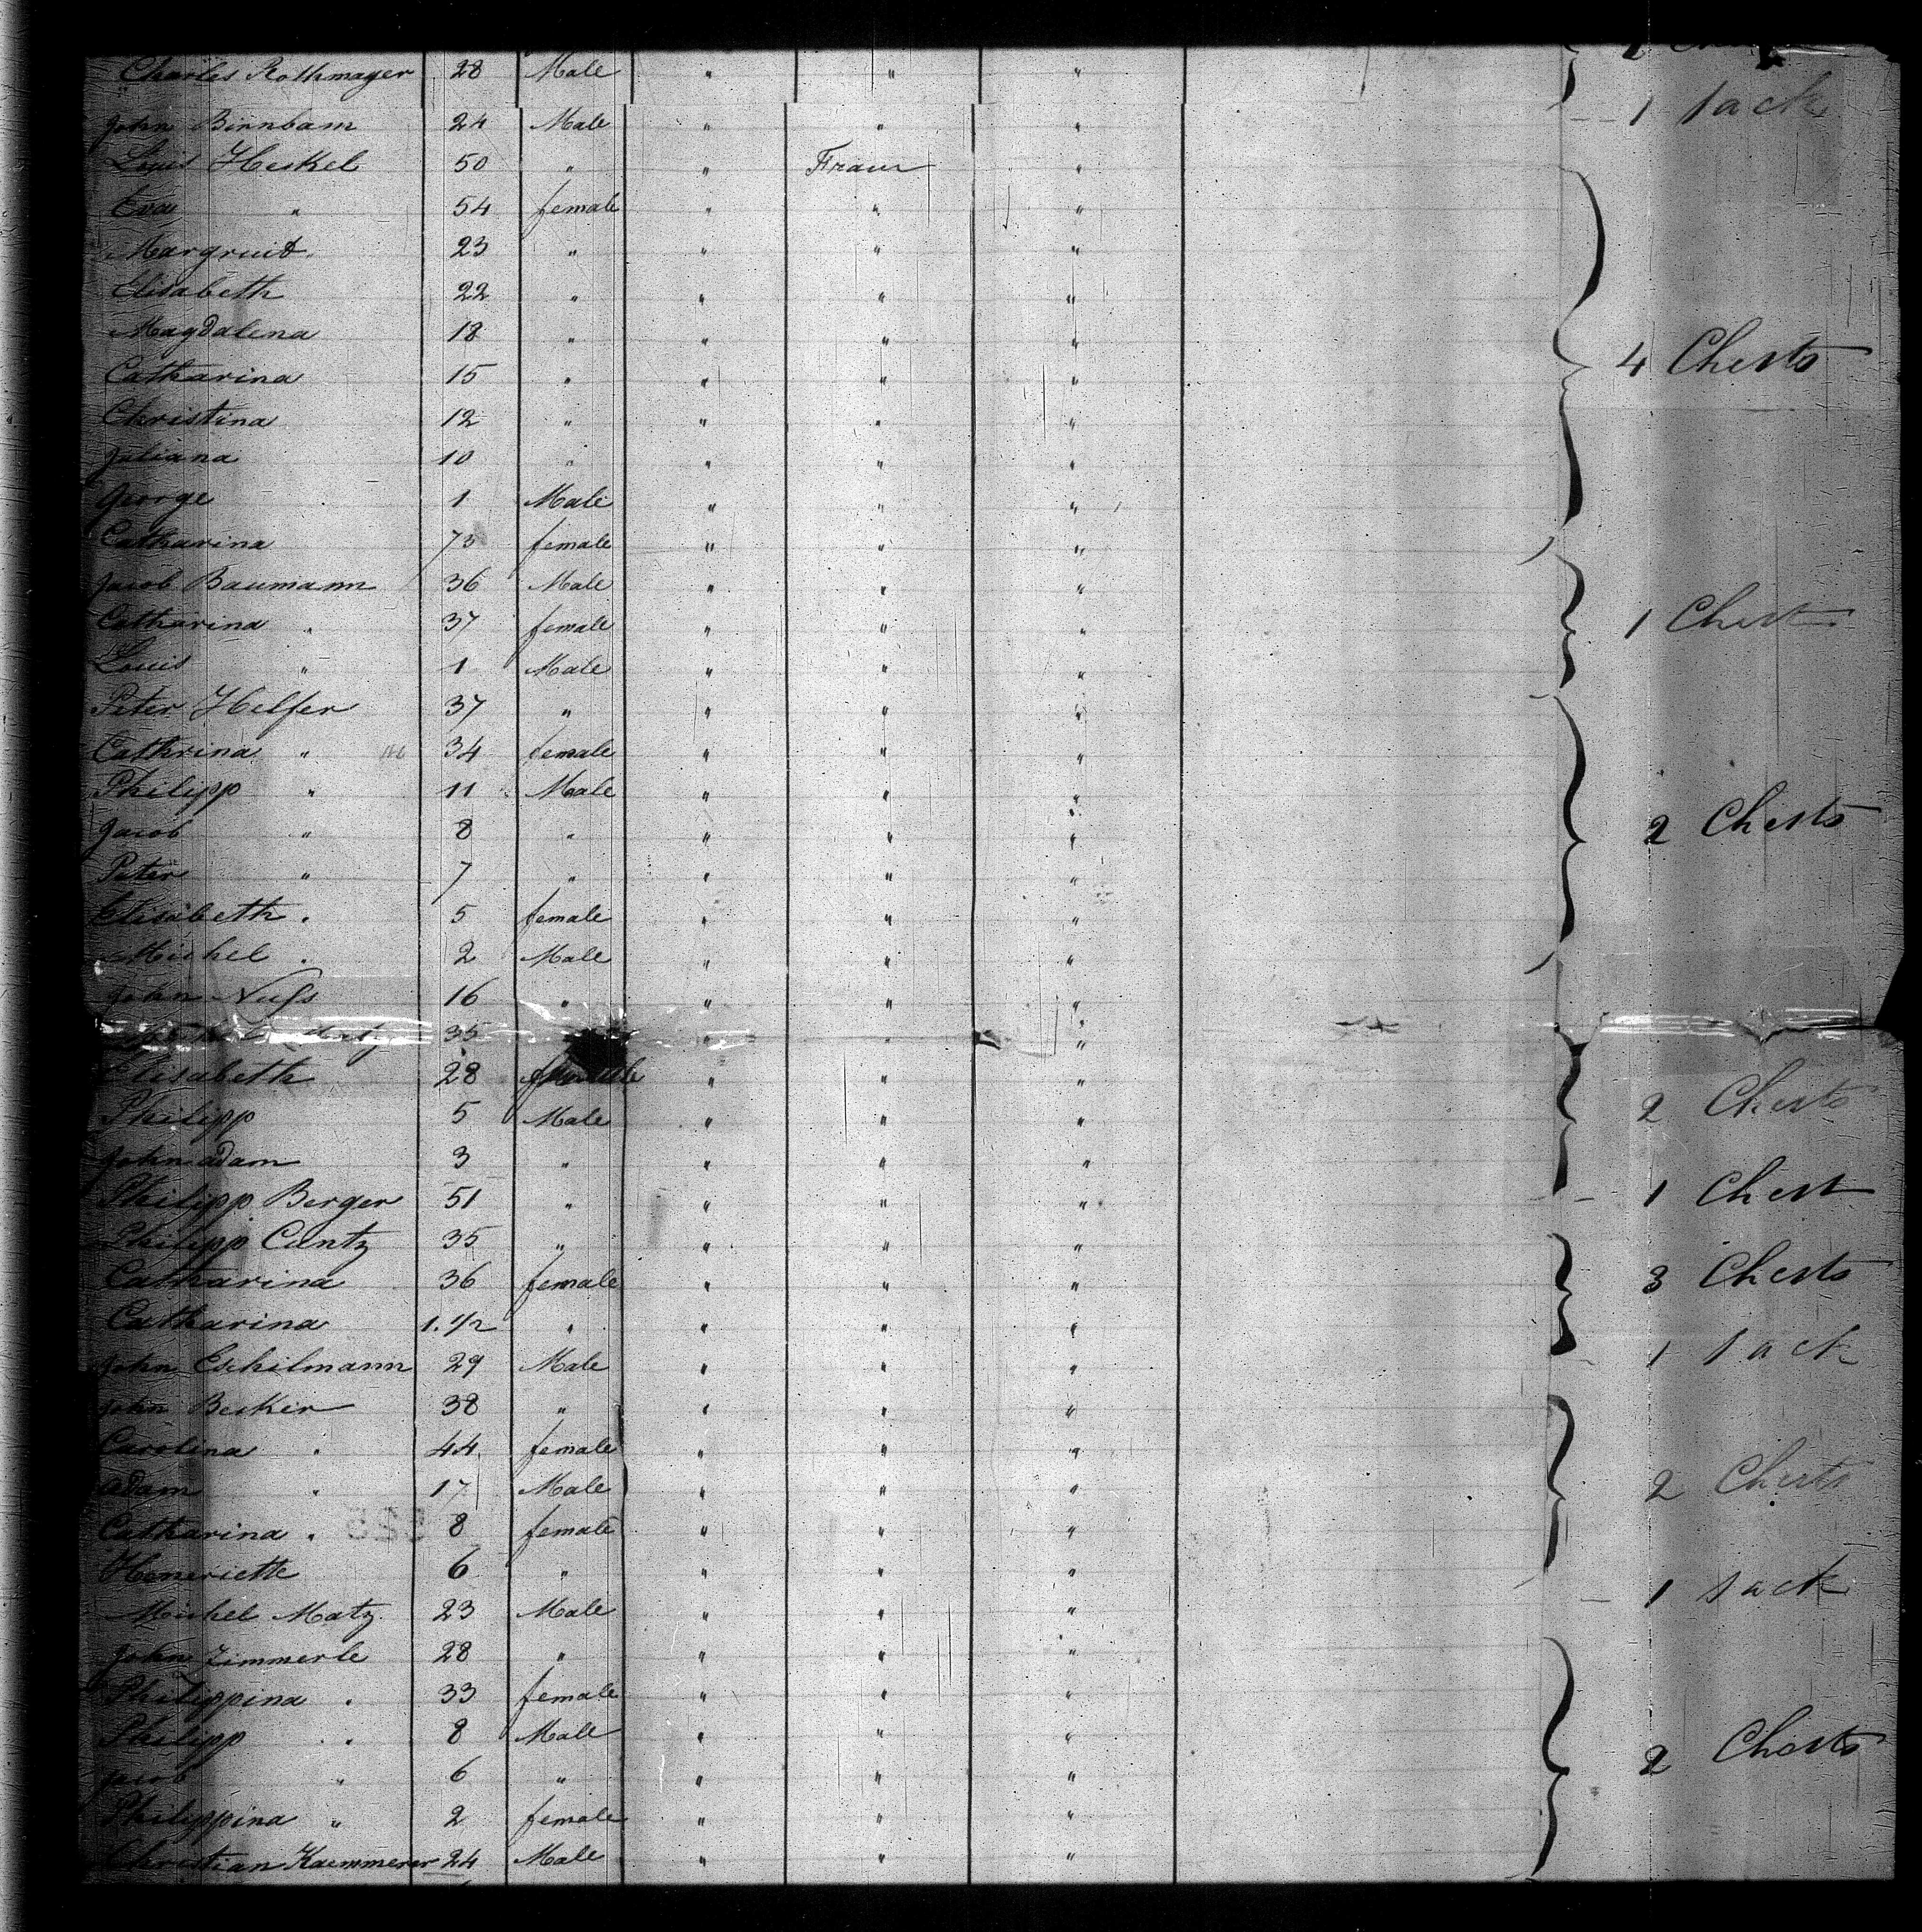 Charles Rothmayer 28 Male " " "
John Birnbam 24 Male " " " 1 Sack
Louis Heckel 50 " " Franc "
Eva " 54 female " " "
Margruit 23 " " " "
Elisabeth 22 " " " "
Magdalena 18 " " " " 4 Chests
Catharina 15 " " " "
Christina 12 " " " "
Juliana 10 " " " "
George 1 Male " " "
Catharina 73 female " " "
Jacob Baumann 36 Male " " "
Catharina " 37 female " " " 1 Chest
Louis " 1 Male " " "
Peter Helfer 37 " " " "
Cathrina " 34 female " " "
Philipp " 11 Male " " " 2 Chests
Jacob " 8 " " " "
Peter " 7 " " " "
Elisabeth " 5 female " " "
Michel " 2 Male " " "
John Nuss 16 " " " "
35 " " "
Elisabeth 28 female " " "
Philipp 5 Male " " " 2 Chests
John adam 3 " " " "
Philipp Berger 51 " " " " 1 Chest
Philipp Cuntz 35 " " " "
Catharina 36 female " " " 3 Chests
Catharina 1.1/2 " " " "
John Eschilmann 29 Male " " " 1 Sack
John Becker 38 " " " "
Carolina " 44 female " " "
Adam " 17 Male " " " 2 Chests
Catharina " 8 female " " "
Heneriette 6 " " " "
Michel Matz 23 Male " " " 1 Sack
John Zimmerle 28 " " " "
Philippina " 33 female " " "
Philipp " 8 Male " " " 2 Chests
Jacob " 6 " " " "
Philippina " 2 female " " "
Christian Kaemmerer 24 Male " " "